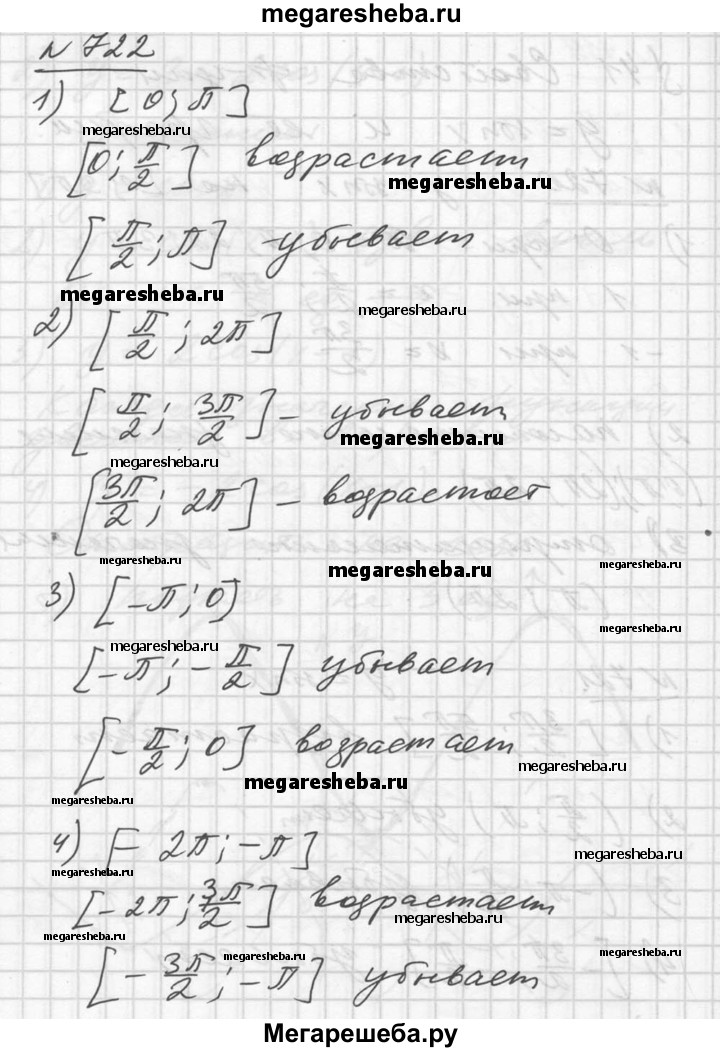 megaresheba.ru
N 722
1) [0; π]
megaresheba.ru
[0; π/2] возрастает
megaresheba.ru
[π/2; π] - убывает
megaresheba.ru
megaresheba.ru
2) [π/2; 2π]
[π/2; 3π/2] - убывает
megaresheba.ru
megaresheba.ru
[3π/2; 2π] - возрастает
megaresheba.ru
megaresheba.ru
megaresheba.ru
3) [-π; 0]
megaresheba.ru
megaresheba.ru
[-π; -π/2] убывает
[-π/2; 0] возрастает
megaresheba.ru
megaresheba.ru
megaresheba.ru
4) [-2π; -π]
megaresheba.ru
megaresheba.ru
[-2π; 3π/2] возрастает
megaresheba.ru
megaresheba.ru
megaresheba.ru
megaresheba.ru
[-3π/2; -π] убывает
Мегарешеба.ру